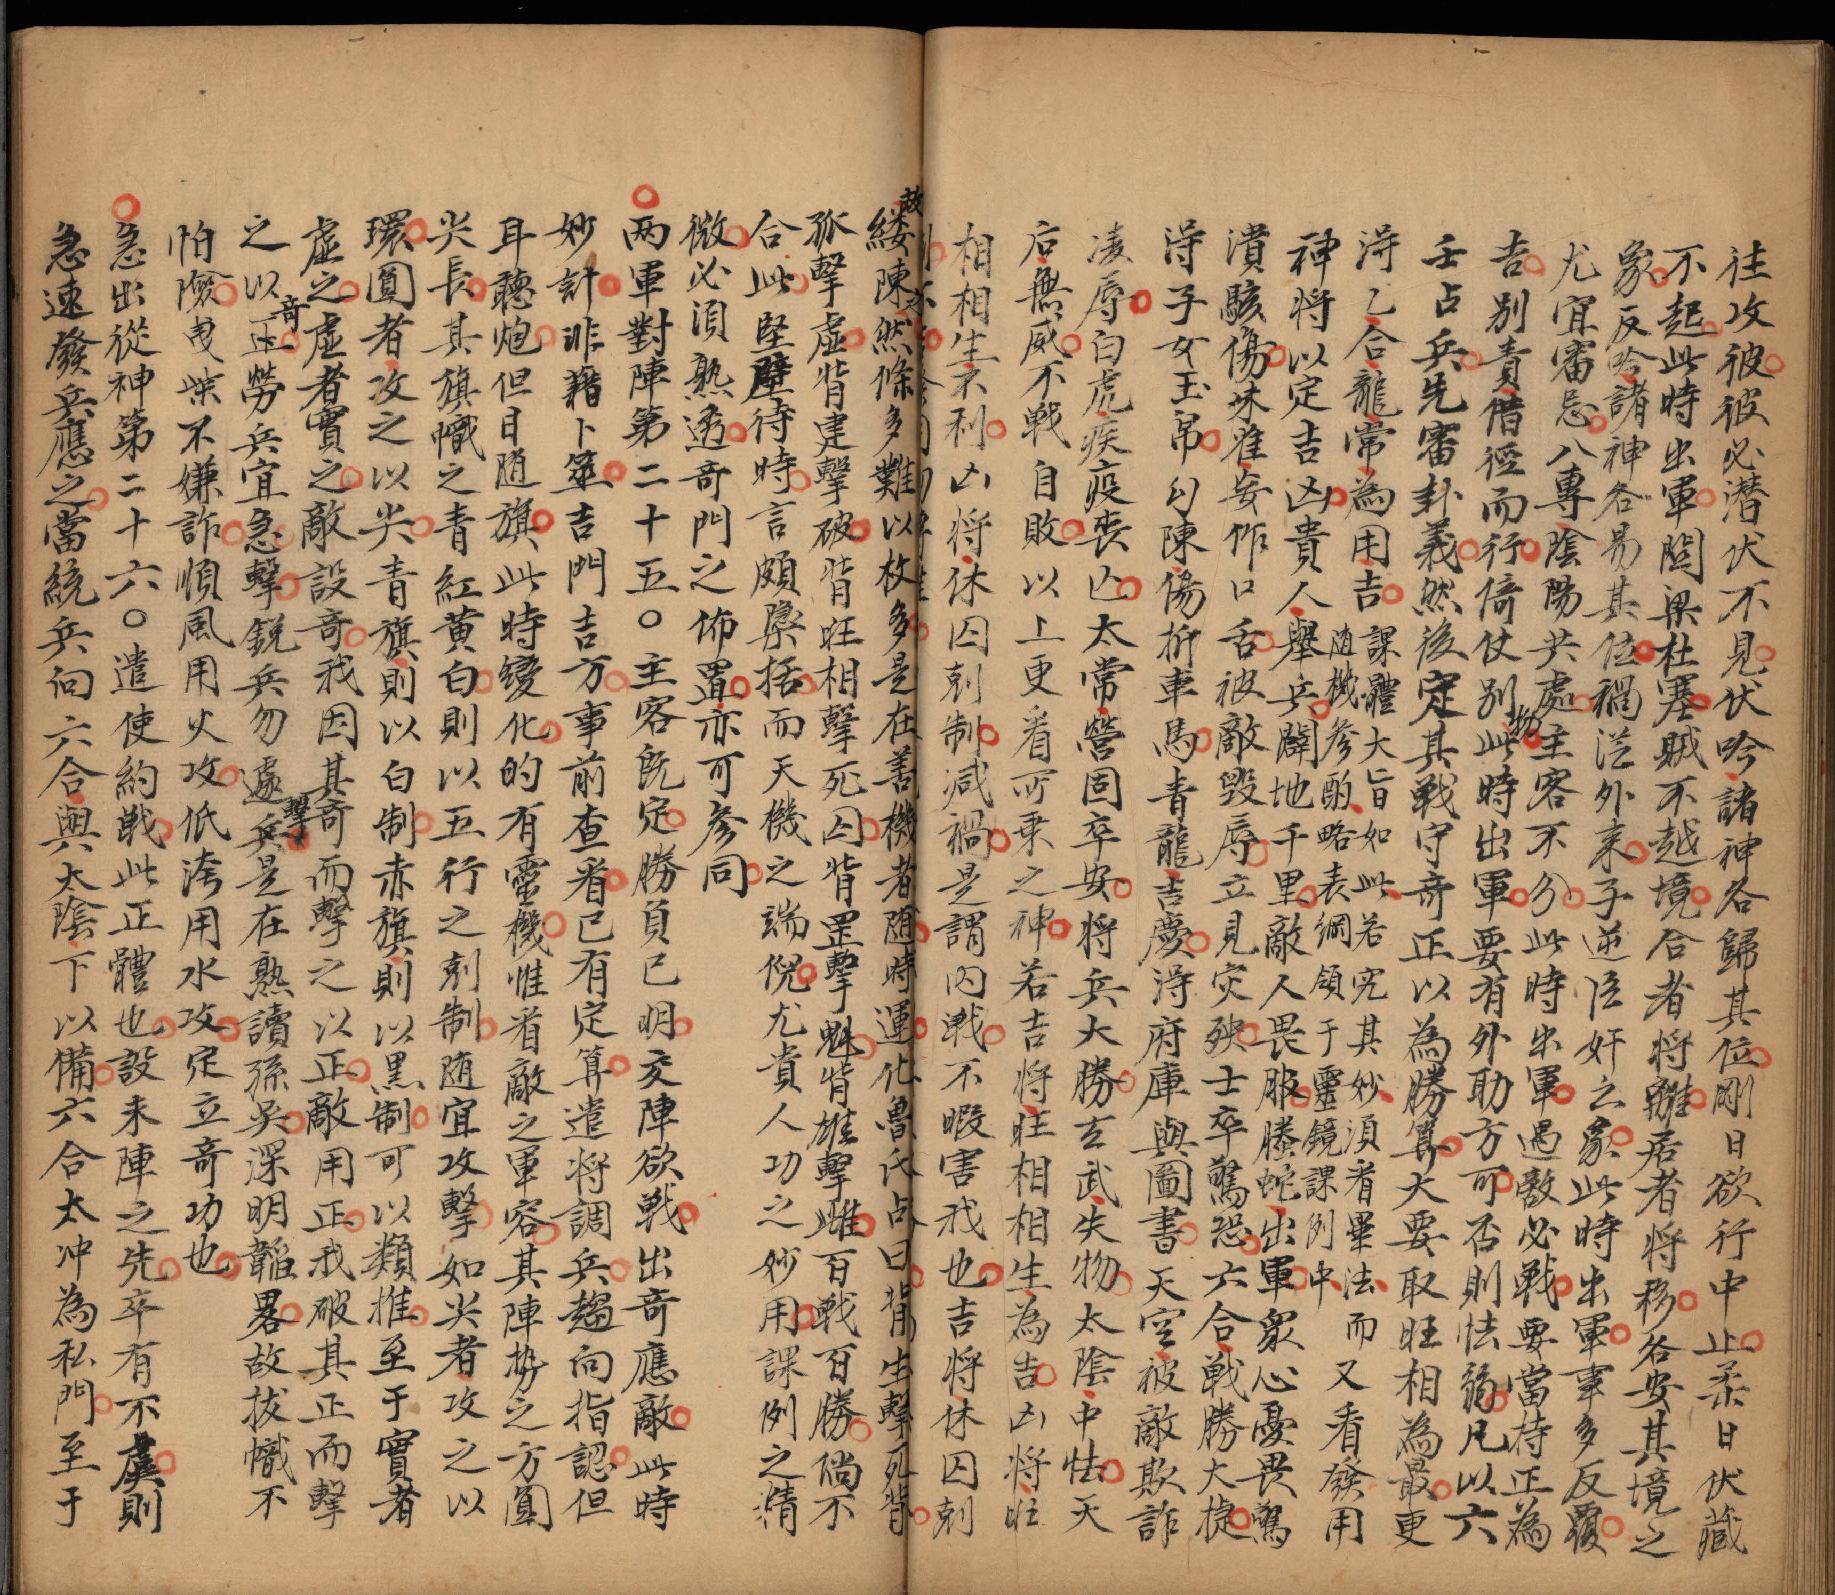 往攻彼彼必潜伏不見伏吟諸神各歸其位剛日欲行中止柔日伏藏
不起此時出軍關梁杜塞賊不越境合者將離居者將移各安其境之
象反吟諸神各易其位禍從外来子逆臣奸之象此時出軍事多反覆
尤宜審忌八專陰陽共處主客不分此時出軍遇敵必戦要當持正為
吉別責借徑而行倚仗別物此時出軍要有外助方可否則怯弱凡以六
壬占兵先審卦義然後定其戦守奇正以為勝算大要取旺相為最更
淂乙合龍常為用吉課體大旨如此若究其妙須看畢法而又看發用
随機参酌略表綱領于靈鏡課例中
神将以定吉凶貴人舉兵闢地千里敵人畏服螣蛇出軍衆心憂畏驚
潰駭傷朱雀妄作口舌被敵毀辱立見灾殃士卒驚恐六合戦勝大捷
淂子女玉帛勾陳傷折車馬青龍吉慶淂府庫與圖書天空被敵欺詐
凌辱白虎疾疫喪亡太常營固卒安将兵大勝玄武失物太陰中怯天
后無威不戦自敗以上更看所乘之神若吉将旺相相生為吉凶将旺
相相生不利凶将休囚剋制减禍是謂内戦不暇害我也吉将休囚剋
縷陳然條多難以枚多是在善機者随時運化魯氏占曰背生擊死背
孤擊虚背建擊破背旺相擊死囚背罡擊魁背雄擊雌百戦百勝倘不
合此堅壁待時言頗檃括而天機之端倪尤貴人功之妙用課例之精
微必湏熟透奇門之佈置亦可参同
两軍對陣第二十五○主客既定勝負已明交陣欲戦出奇應敵此時
妙計非藉卜筮吉門吉方事前查看已有定算遣将調兵趨向指認但
耳聽炮但目随旗此時變化的有靈機惟看敵之軍容其陣势之方圓
尖長其旗幟之青紅黄白則以五行之剋制随宜攻擊如尖者攻之以
環圓者攻之以尖青旗則以白制赤旗則以黒制可以類推至于實者
虚之虚者實之敵設奇我因其奇而擊之以正敵用正我破其正而擊
之以奇正勞兵宜急擊鋭兵勿遽擊是在熟讀孫吴深明韜畧故拔幟不
怕險曳柴不嫌詐順風用火攻低洿用水攻定立奇功也
急出從神第二十六○遣使約戦此正體也設未陣之先卒有不虞則
急速發兵應之當統兵向六合與太陰下以備六合太冲為私門至于